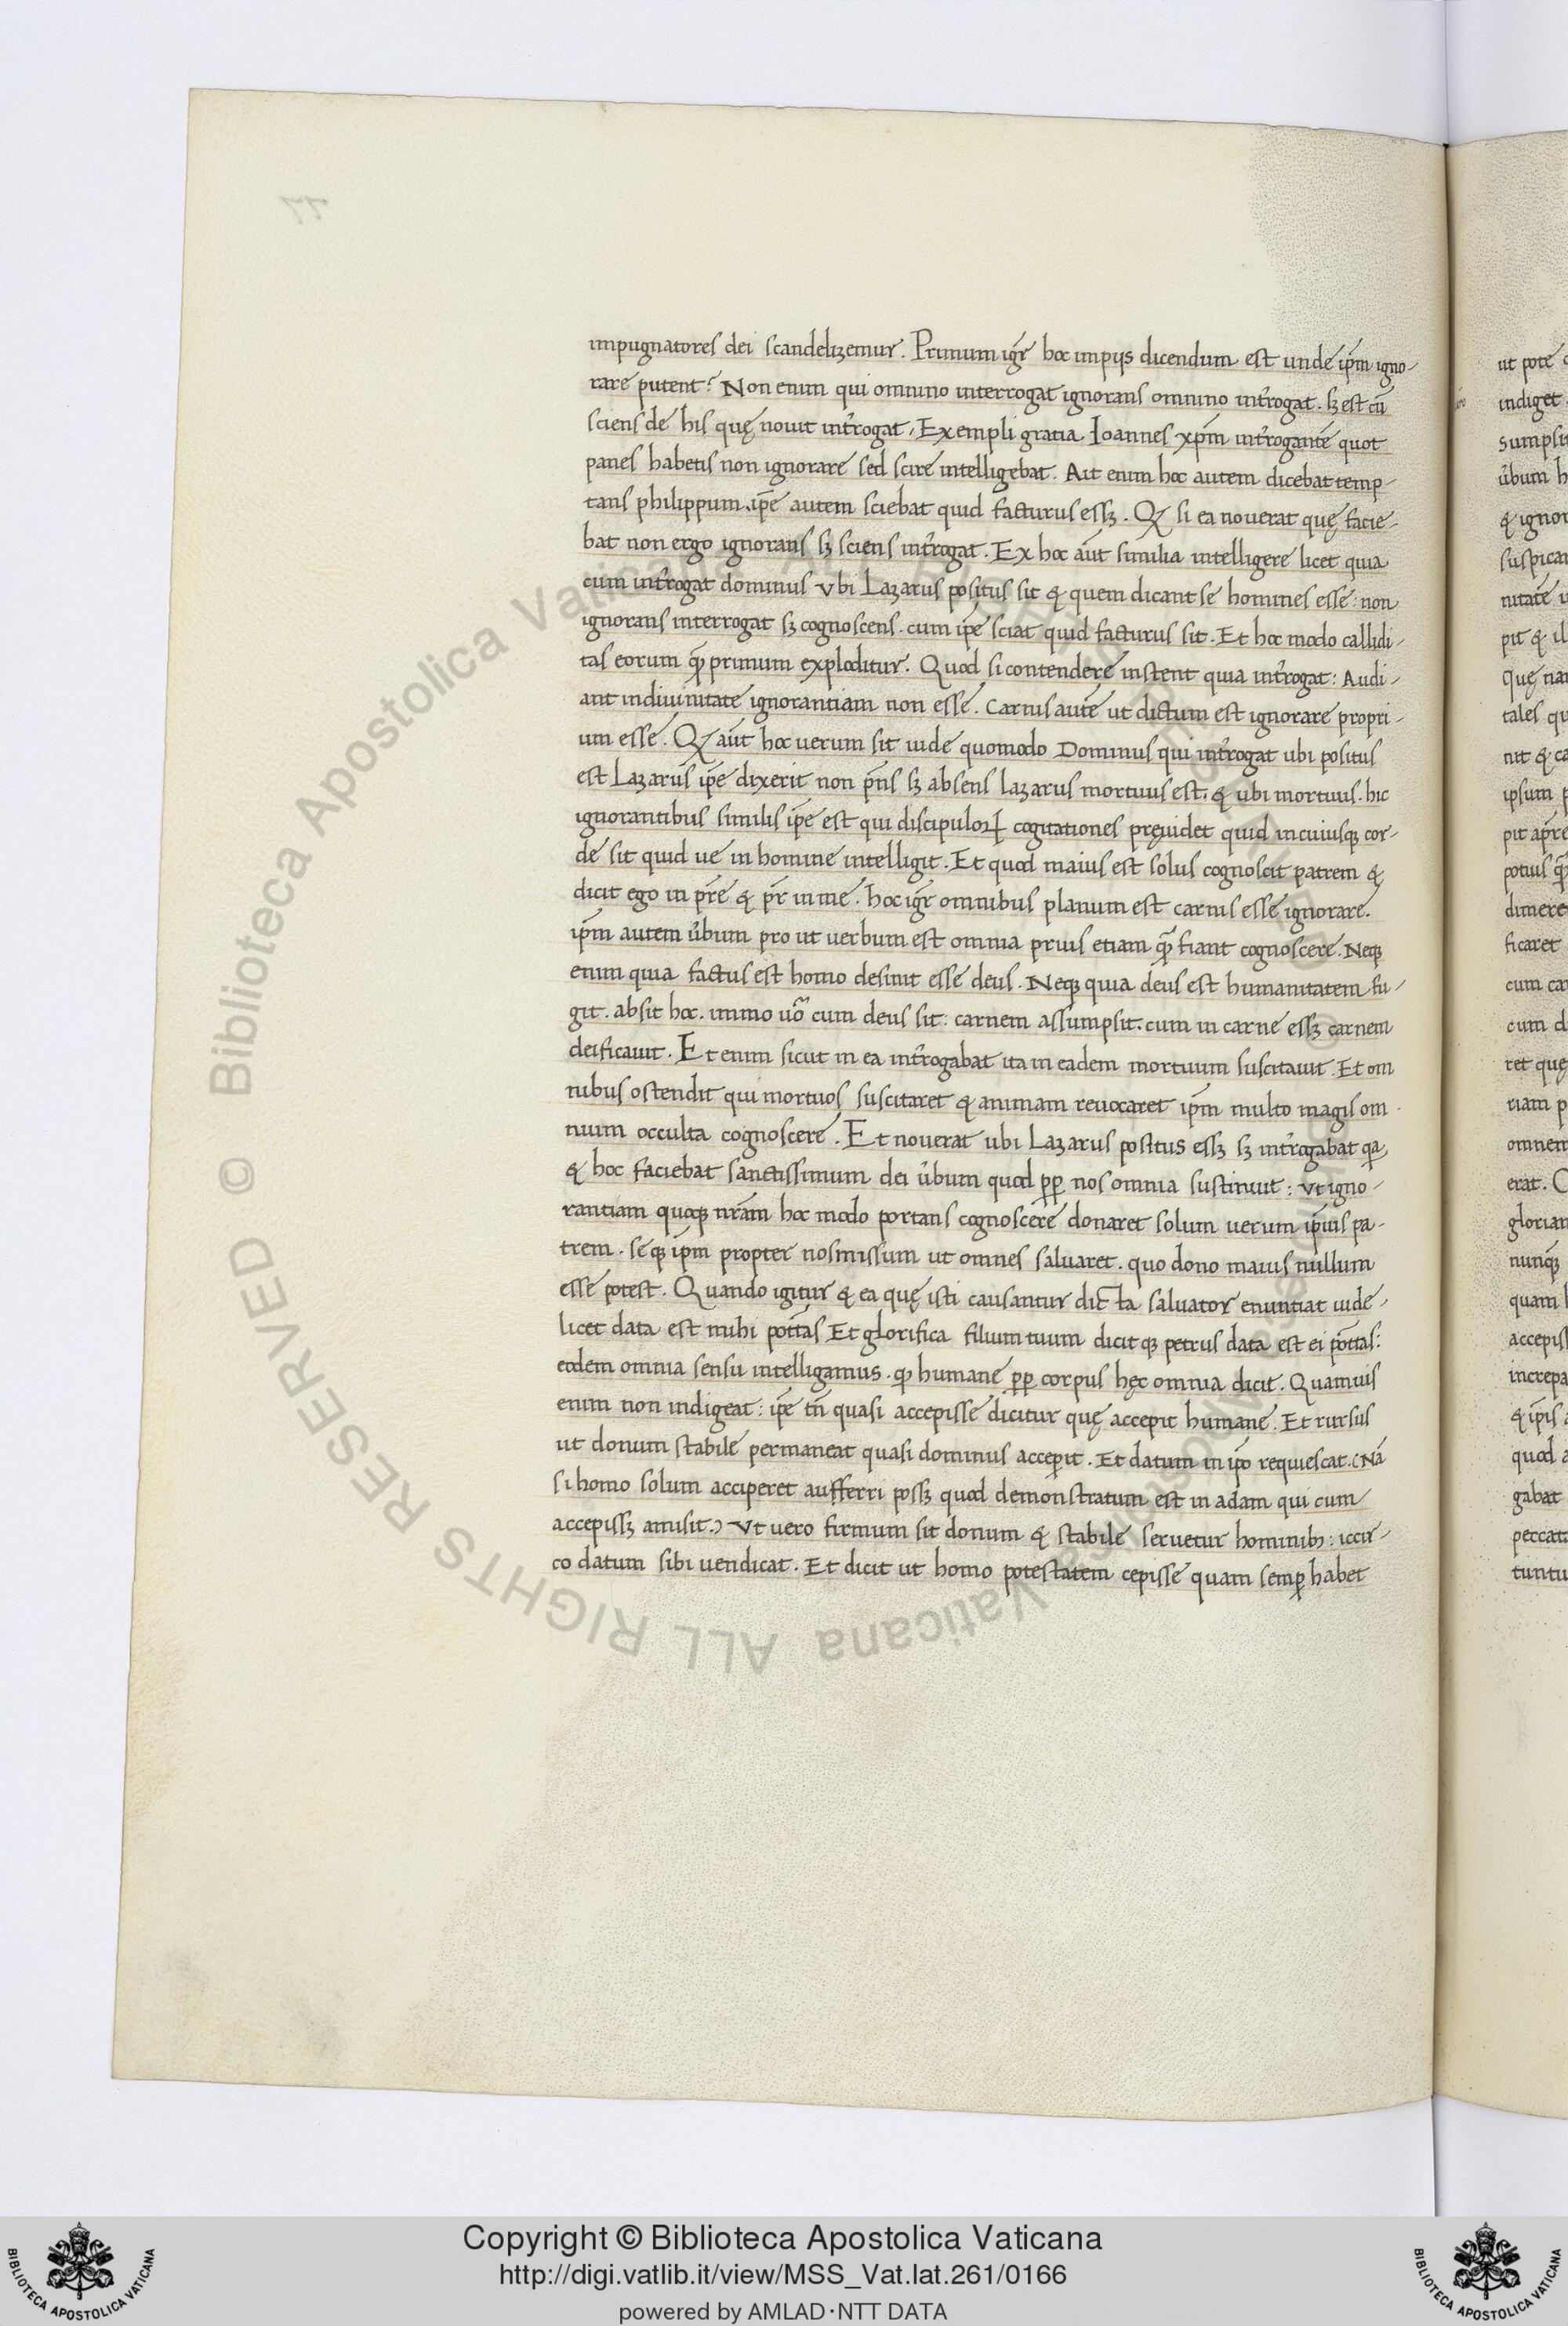 impugnatores dei scandelizemur. Primum igr̄ hoc impijs dicendum est unde ip̄m igno-
rare putent? Non enim qui omnino interrogat ignorans omnino int̄rogat. sȝ est cū
sciens de his quę nouit int̄rogat, Exempli gratia Ioannes xp̄m int̄rogantē quot
panes habetis non ignorare sed scire intelligebat. Ait enim hoc autem dicebat temp-
tans philippum. ip̄e autem sciebat quid facturus essȝ. Qȝ si ea nouerat quę facie-
bat non ergo ignorans sȝ sciens int̄rogat. Ex hoc aūt similia intelligere licet quia
cum int̄rogat dominus vbi Lazarus positus sit & quem dicant se homines esse: non
ignorans interrogat sȝ cognoscens. cum ip̄e sciat quid facturus sit. Et hoc modo callidi-
tas eorum qꝫ primum exploditur. Quod si contendere instent quia int̄rogat: Audi-
ant indiuinitate ignorantiam non esse. Carnis autē ut dictum est ignorare propri-
um esse. Qȝ aūt hoc uerum sit uide quomodo Dominus qui int̄rogat ubi positus
est Lazarus ip̄e dixerit non p̄ns sȝ absens lazarus mortuus est. & ubi mortuus. hic
ignorantibus similis ip̄e est qui discipuloꝝ cogitationes pręuidet quid incuiusqꝫ cor-
de sit quid ue in homine intelligit. Et quod maius est solus cognoscit patrem &
dicit ego in pr̄e & pr̄ in me. hoc igr̄ omnibus planum est carnis esse ignorare.
ip̄m autem u̇bum pro ut uerbum est omnia prius etiam qꝫ̄ fiant cognoscere. Neqꝫ
enim quia factus est homo desinit esse deus. Neqꝫ quia deus est humanitatem fu-
git. absit hoc. immo uō cum deus sit: carnem assumpsit. cum in carne essȝ carnem
deificauit. Et enim sicut in ea int̄rogabat ita in eadem mortuum suscitauit. Et om
nibus ostendit qui mortuos suscitaret & animam reuocaret ip̄m multo magis om-
nium occulta cognoscere. Et nouerat ubi Lazarus positus essȝ sȝ int̄rogabat qa
& hoc faciebat sanctissimum dei u̇bum quod ꝓp nos omnia sustinuit: vt igno-
rantiam quoqꝫ nr̄am hoc modo portans cognoscere donaret solum uerum ip̄ius pa-
trem. seqꝫ ip̄m propter nos missum ut omnes saluaret. quo dono maius nullum
esse potest. Quando igitur & ea quę isti causantur dicta saluator enuntiat uide-
licet data est mihi pot̄tas Et glorifica filium tuum dicitqꝫ petrus data est ei pot̄tas:
eodem omnia sensu intelligamus. qꝫ humane ꝓp corpus hęc omnia dicit. Quamuis
enim non indigeat: ip̄e tn̄ quasi accepisse dicitur quę accepit humane. Et rursus
ut donum stabile permaneat quasi dominus accep̱it. Et datum in ip̄o requiescat. (Nā
si homo solum acciperet aufferri possȝ quod demonstratum est in adam qui cum
accepissȝ amisit.) Vt uero firmum sit donum & stabile seruetur hominibȝ: iccir-
co datum sibi uendicat. Et dicit ut homo potestatem cepisse quam semꝑ habet
ut pote
indiget.
u̇bum h
& ignor
nitate u
pit & il
tales qu
ipsum p
ficaret
cum d
ret que
riam p
erat.
nunqꝫ
quam
increpa
quod a
gabat
Copyright © Biblioteca Apostolica Vaticana
http://digi.vatlib.it/view/MSS_Vat.lat.261/0166
powered by AMLAD·NTT DATA
BIBLIOTECA APOSTOLICA VATICANA
BIBLIOTECA APOSTOLICA VATICANA
© Biblioteca Apostolica Vaticana ALL RIGHTS RESERVED